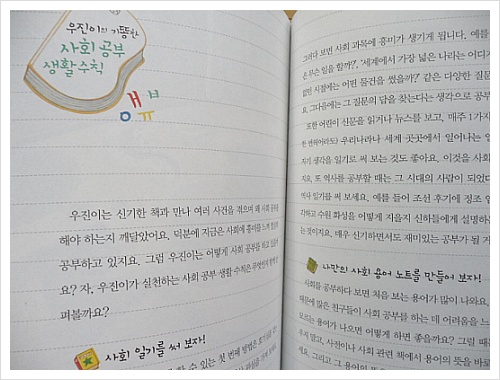 우진이의 기똥찬
사회 공부
생활 수칙
우진이는 신기한 책과 만나 여러 사건을 겪으며 왜 사회 공부를
해야 하는지 깨달았어요. 덕분에 지금은 사회에 흥미를 느끼
공부하고 있지요. 그럼 우진이는 어떻게 사회 공부를 하고
요? 자, 우진이가 실천하는 사회 공부 생활 수칙은 무엇인지
펴볼까요?
사회 일기를 써 보자!
할 수 있는 첫 번째 방법은
그러다 보면 사회 과목에 흥미가 생기게 됩니다. 예를
은 무슨 일을 할까?, '세계에서 가장 넓은 나라는 어디
렵던 시절에는 어떤 물건을 썼을까?' 같은 다양한 질문
요. 그다음에는 그 질문의 답을 찾는다는 생각으로 공부
또한 어린이 신문을 읽거나 뉴스를 보고, 매주 1가지
한 번씩이라도) 우리나라나 세계 곳곳에서 일어나는
자기 생각을 일기로 써 보는 것도 좋아요. 이것을 사회
지요. 또 역사를 공부할 때는 그 시대의 사람이 되었다
역사 일기를 써 보세요. 예를 들어 조선 후기에 정조
각하고 수원 화성을 어떻게 지을지 신하들에게 설명하
는 것이지요. 매우 신기하면서도 재미있는 공부가 될
나만의 사회 용어 노트를 만들어 보자!
사회를 공부하다 보면 처음 보는 용어가 많이 나와요.
때문에 많은 친구들이 사회 공부를 하는 데 어려움을 느
모르는 용어가 나오면 어떻게 하면 좋을까요? 그럴 때
우지 말고, 사전이나 사회 관련 책에서 용어의 뜻을 바로
세요. 그리고 그 용어의 뜻을